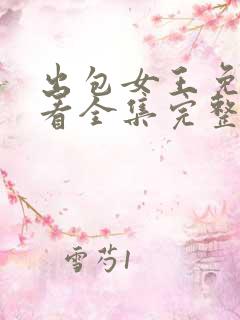 出包女王免
看全集完整
雪芍1